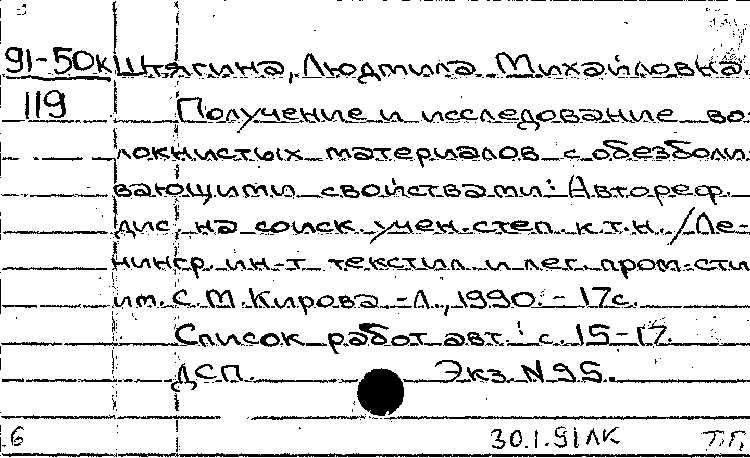 91-50к Штягина, Людмила Михайловна.
119 Получение и исследование во-
локнистых материалов с обезболи-
вающими свойствами: Автореф.
дис. на соиск. учен. степ. к.т.н. / Ле-
нингр. ин-т текстил. и лег. пром-сти
им. С.М. Кирова - Л., 1990. - 17с.
Список работ авт.: с. 15-17.
ДСП. Экз. N 95.
6 30.1.91 ЛК Т.П.